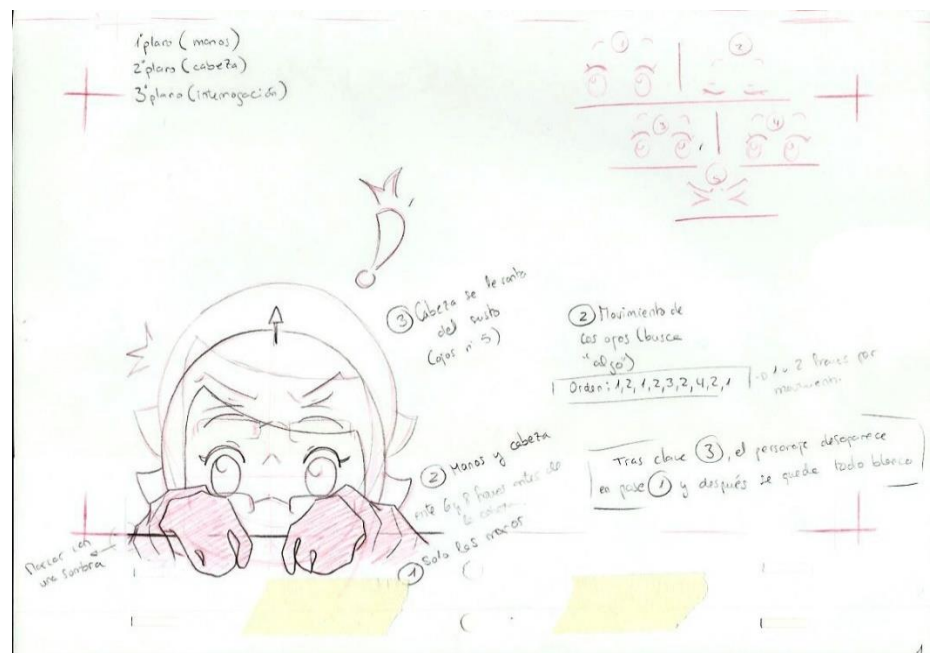 1ºplano (manos)
2ºplano (cabeza)
3ºplano (interrogación)
1
2
3
4
5
3 Cabeza se levanta
del susto
(ojos nº 5)
2 Movimiento de
los ojos (busca
"algo")
Orden: 1,2,1,2,3,2,4,2,1
1 o 2 frames por
movimiento
2 Manos y cabeza
entre 6 y 8 frames antes de
la
1 Solo las manos
Tras clave 3, el personaje desaparece
en pose 1 y después se queda todo blanco
Marcar con
una sombra
1